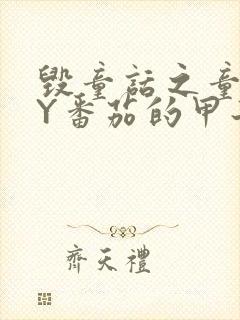 毀童話之童
Y番茄的甲
齊天禮